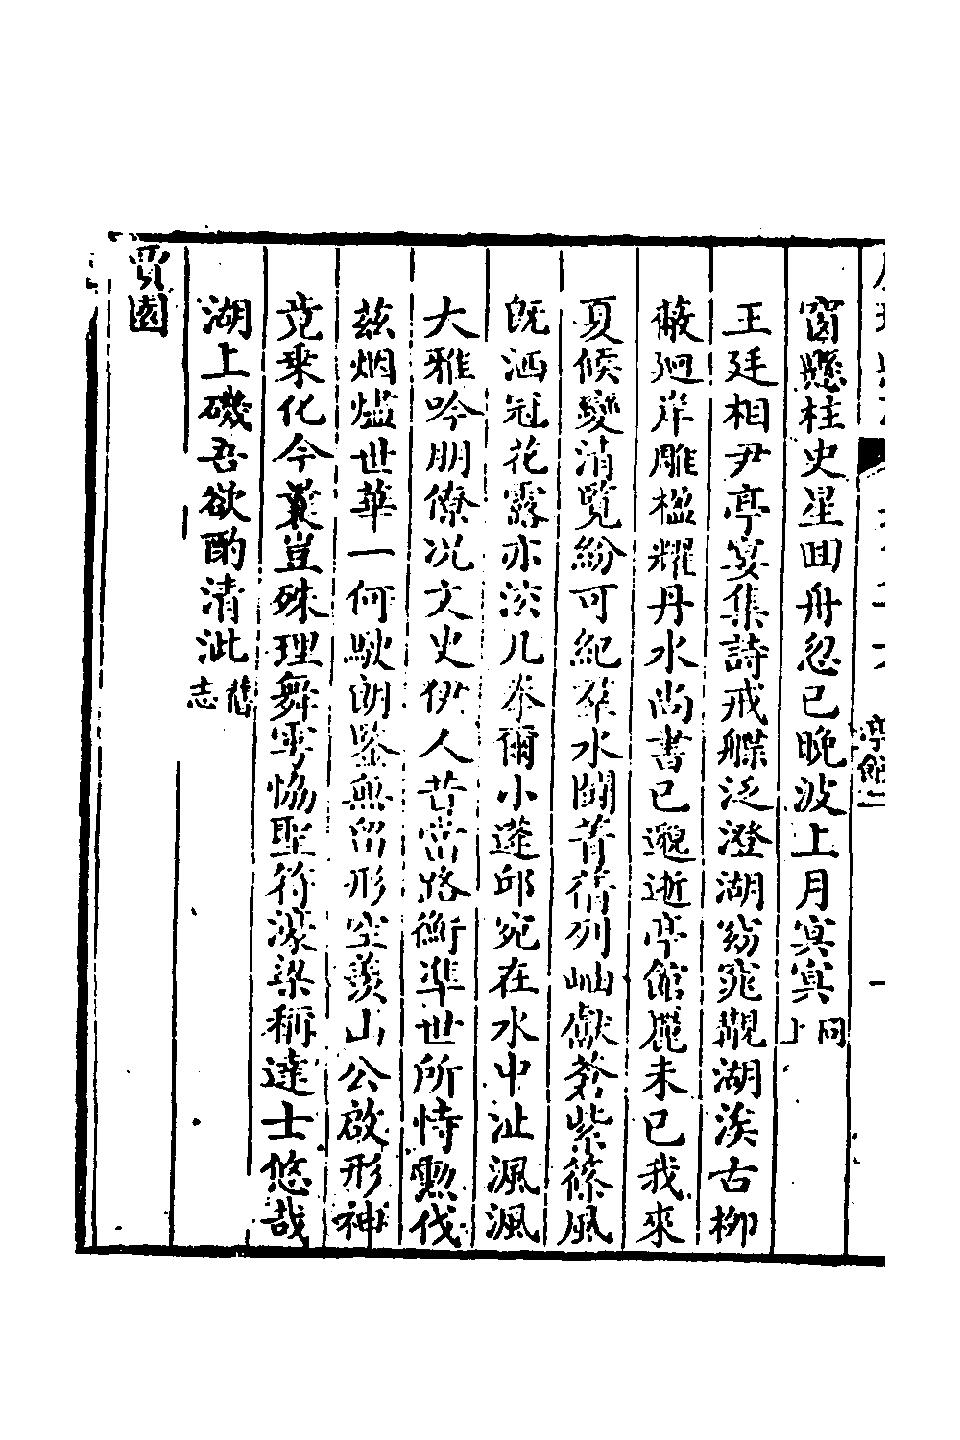 亭館二
窗懸柱史星回舟忽已晚波上月冥冥同上
王廷相尹亭宴集詩戒艓泛澄湖窈窕觀湖涘古柳
蔽廻岸雕楹耀丹水尚書已邈逝亭館麗未已我來
夏候變消覽紛可紀羣水闢菁蒨列岫獻夢紫篠風
旣洒冠花露亦泫几泰爾小蓬邱宛在水中沚渢渢
大雅吟朋僚况文史伊人昔當路衡準世所恃勲伐
兹烟燼世華一何駛朗鑒無留形空羨山公啟形神
竟乗化今囊豈殊理舞雩恊聖符濠梁稱達士悠哉
湖上磯吾欲酌清泚舊志
賈園